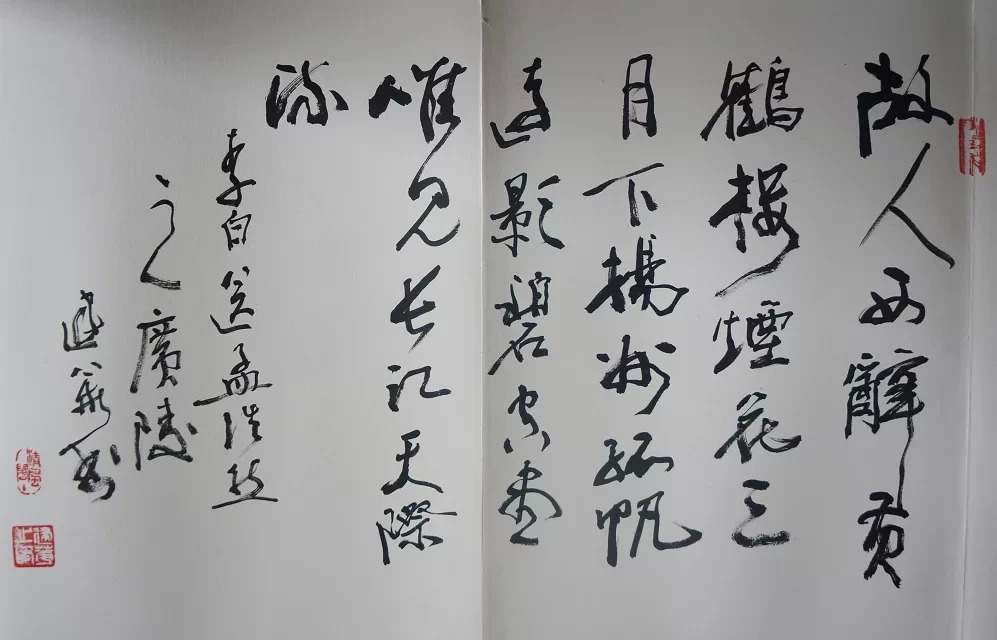 故人西辭黄
鶴樓煙花三
月下揚州孤帆
遠影碧空盡
唯見長江天際
流
李白送孟浩然
之廣陵